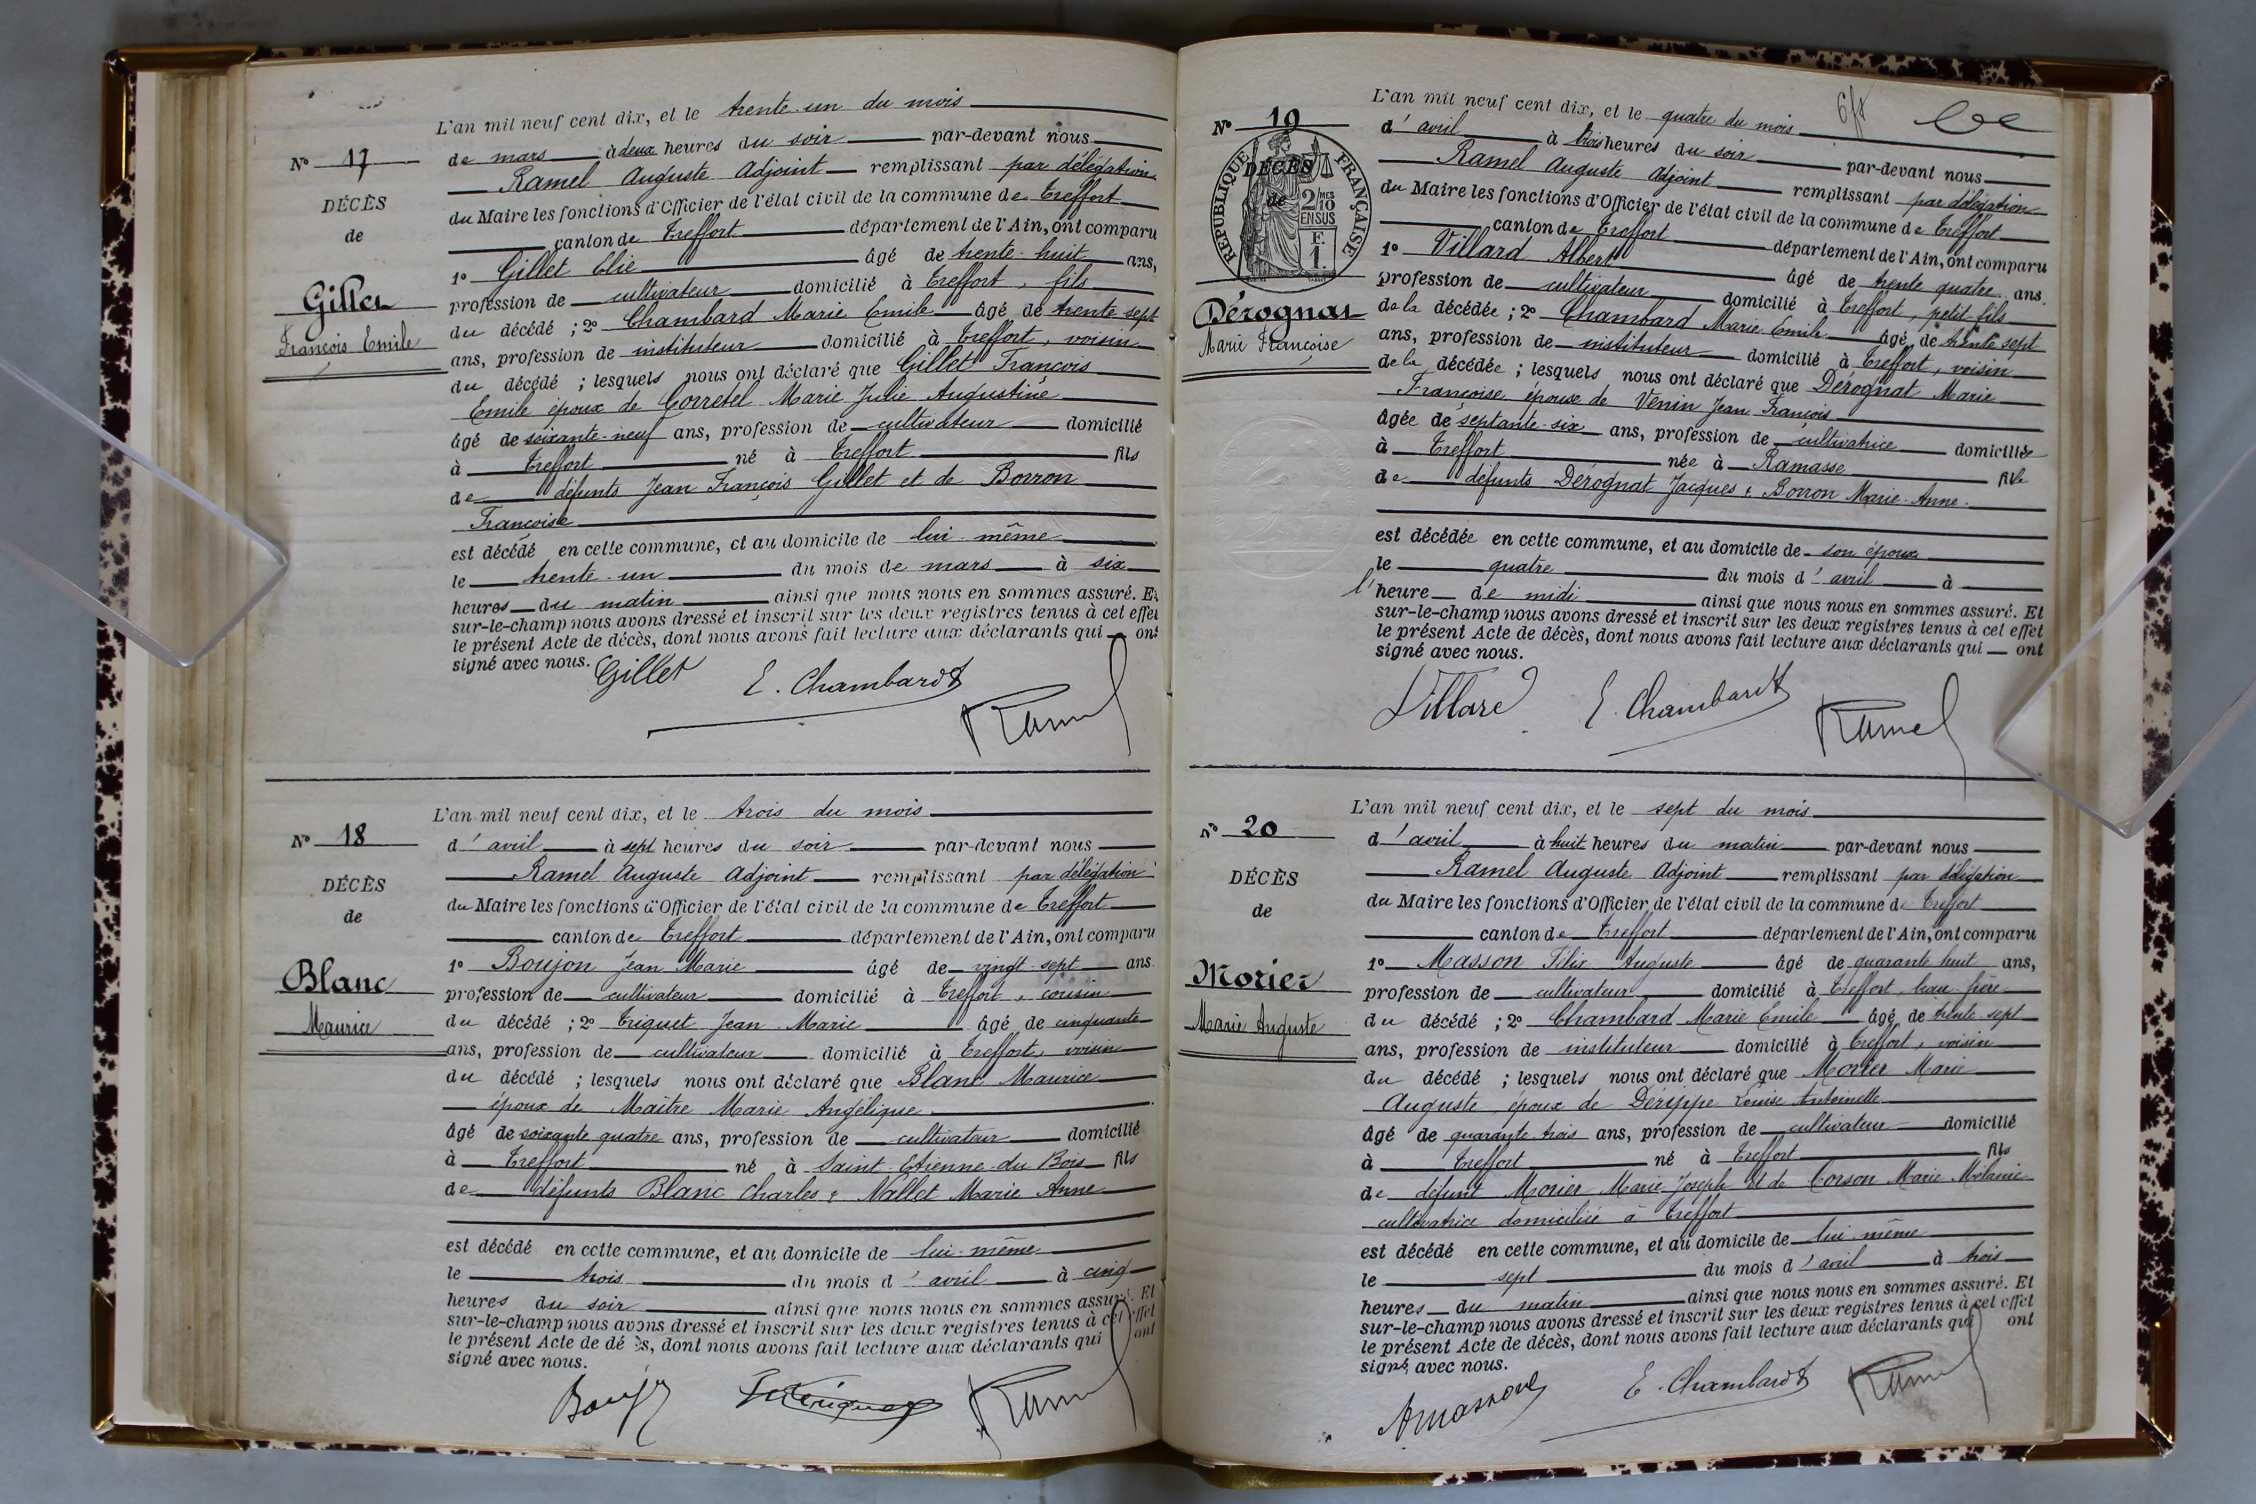 L'an mil neuf cent dix, et le trente-un du mois
Nº 17
de mars à deux heures du soir par-devant nous
Ramel Auguste Adjoint remplissant par délégation
DÉCÈS
du Maire les fonctions d'Officier de l'état civil de la commune de Treffort
de
canton de Treffort département de l'Ain, ont comparu
1º Gillet Elie âgé de trente-huit ans,
Gillet
profession de cultivateur domicilié à Treffort, fils
du décédé ; 2º Chambard Marie Emile âgé de trente sept
François Emile
ans, profession de instituteur domicilié à Treffort, voisin
du décédé ; lesquels nous ont déclaré que Gillet François
Emile époux de Corretel Marie Julie Augustine
âgé de soixante-neuf ans, profession de cultivateur domicilié
à Treffort né à Treffort fils
de défunts Jean François Gillet et de Borron
Françoise
est décédé en cette commune, et au domicile de lui-même
le trente-un du mois de mars à six
heures du matin ainsi que nous nous en sommes assuré. Et
sur-le-champ nous avons dressé et inscrit sur les deux registres tenus à cet effet
le présent Acte de décès, dont nous avons fait lecture aux déclarants qui ont
signé avec nous.
Gillet
E. Chambard
Ramel
L'an mil neuf cent dix, et le trois du mois
Nº 18
d'avril à sept heures du soir par-devant nous
Ramel Auguste Adjoint remplissant par délégation
DÉCÈS
du Maire les fonctions d'Officier de l'état civil de la commune de Treffort
de
canton de Treffort département de l'Ain, ont comparu
1º Boujon Jean Marie âgé de vingt-sept ans
Blanc
profession de cultivateur domicilié à Treffort, cousin
Maurice
du décédé ; 2º Triquet Jean Marie âgé de cinquante
ans, profession de cultivateur domicilié à Treffort, voisin
du décédé ; lesquels nous ont déclaré que Blanc Maurice
époux de Maitre Marie Angélique
âgé de soixante quatre ans, profession de cultivateur domicilié
à Treffort né à Saint-Etienne-du-Bois fils
de défunts Blanc Charles & Nallet Marie Anne
est décédé en cette commune, et au domicile de lui-même
le trois du mois d'avril à cinq
heures du soir ainsi que nous nous en sommes assuré. Et
sur-le-champ nous avons dressé et inscrit sur les deux registres tenus à cet effet
le présent Acte de décès, dont nous avons fait lecture aux déclarants qui ont
signé avec nous.
Ramel
L'an mil neuf cent dix, et le quatre du mois
Nº 19
d'avril à trois heures du soir par-devant nous
RÉPUBLIQUE FRANÇAISE
DÉCÈS
de
2/10 MES
EN SUS
F.
1.
Ramel Auguste Adjoint remplissant par délégation
du Maire les fonctions d'Officier de l'état civil de la commune de Treffort
canton de Treffort département de l'Ain, ont comparu
1º Villard Albert âgé de trente quatre ans.
profession de cultivateur domicilié à Treffort, petit fils
Dérognat
de la décédée ; 2º Chambard Marie Emile âgé de trente sept
Marie Françoise
ans, profession de instituteur domicilié à Treffort, voisin
de la décédée ; lesquels nous ont déclaré que Dérognat Marie
Françoise épouse de Venin Jean François
âgée de septante-six ans, profession de cultivatrice domiciliée
à Treffort née à Ramasse fille
de défunts Dérognat Jacques & Borron Marie-Anne.
est décédée en cette commune, et au domicile de son époux
le quatre du mois d'avril à
l'heure de midi ainsi que nous nous en sommes assuré. Et
sur-le-champ nous avons dressé et inscrit sur les deux registres tenus à cet effet
le présent Acte de décès, dont nous avons fait lecture aux déclarants qui ont
signé avec nous.
Villard
E. Chambard
Ramel
L'an mil neuf cent dix, et le sept du mois
Nº 20
d'avril à huit heures du matin par-devant nous
Ramel Auguste Adjoint remplissant par délégation
DÉCÈS
du Maire les fonctions d'Officier de l'état civil de la commune de Treffort
de
canton de Treffort département de l'Ain, ont comparu
1º Masson Félix Auguste âgé de quarante huit ans,
Morier
profession de cultivateur domicilié à Treffort, beau-frère
Marie Auguste
du décédé ; 2º Chambard Marie Emile âgé de trente-sept
ans, profession de instituteur domicilié à Treffort, voisin
du décédé ; lesquels nous ont déclaré que Morier Marie
Auguste, époux de Dérippe Louise Antoinette
âgé de quarante-trois ans, profession de cultivateur domicilié
à Treffort né à Treffort fils
de défunt Morier Marie Joseph et de Corson Marie Mélanie
cultivatrice domiciliée à Treffort
est décédé en cette commune, et au domicile de lui-même
le sept du mois d'avril à trois
heures du matin ainsi que nous nous en sommes assuré. Et
sur-le-champ nous avons dressé et inscrit sur les deux registres tenus à cet effet
le présent Acte de décès, dont nous avons fait lecture aux déclarants qui ont
signé avec nous.
E. Chambard
Ramel